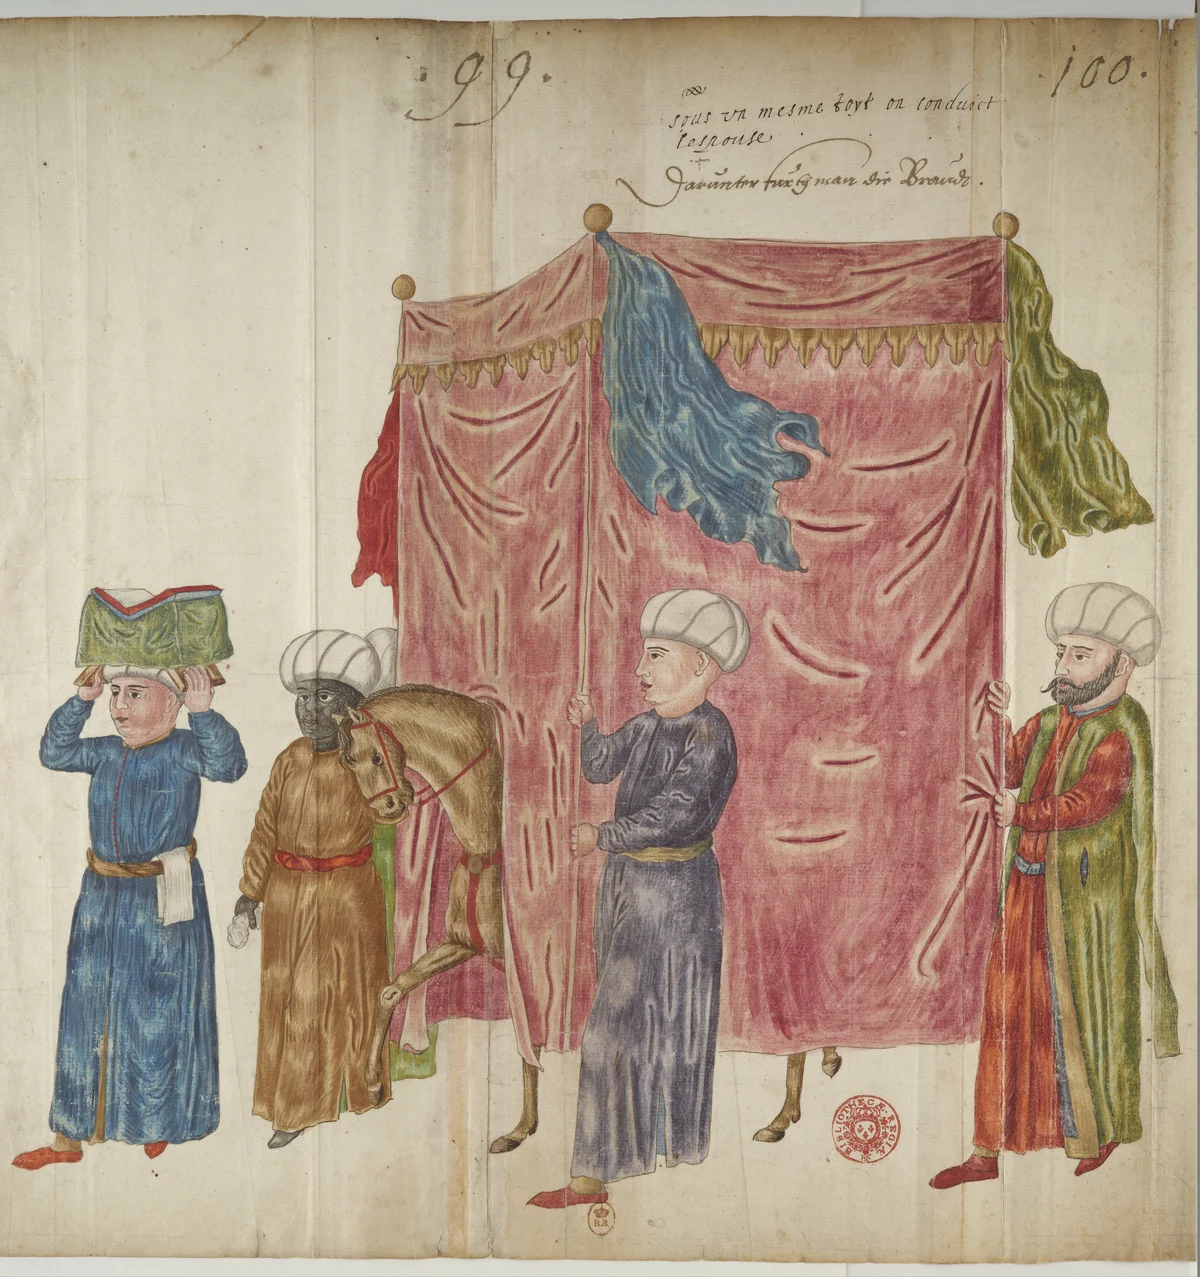 99.
100.
sous vn mesme toyt on conduict
lespouse
Darunter furtt man die Braudt.
BIBLIOTHECÆ REGIÆ
B.R.